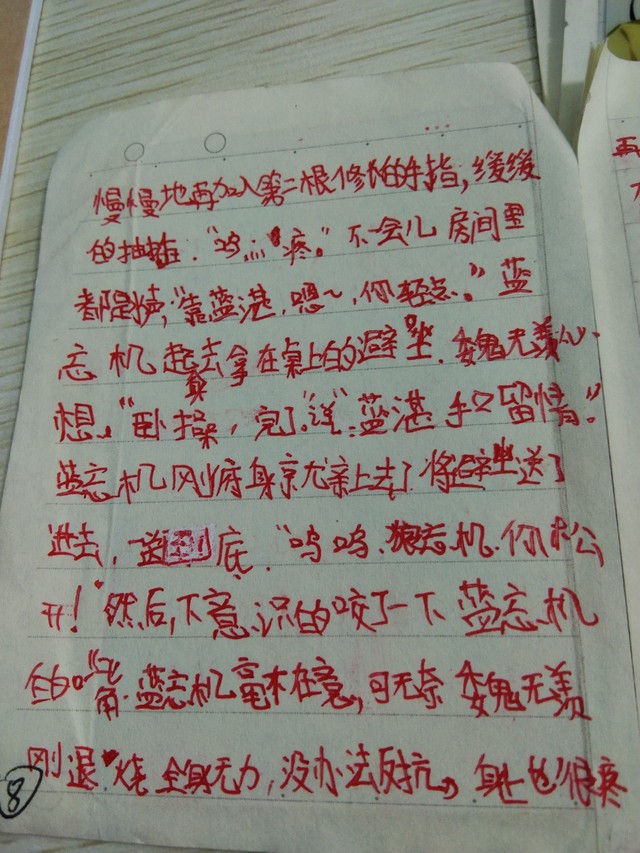 慢慢地再加入第二根修长的手指，缓缓
的抽插."呜 点 疼。"不一会儿 房间里
都是 ，"靠蓝湛，嗯～，你轻点。"蓝
忘机 起去拿在桌上的避尘. 魏无羡心
想."卧操，完了" "蓝湛 手下留情"
蓝忘机刚俯身就亲上去了 将避尘送了
进去，一送到底."呜呜. 蓝忘机.你松
开！"然后，下意识的咬了一下 蓝忘机
的嘴角. 蓝忘机毫不在意，可无奈 魏无羡
刚退 烧 全身无力，没办法反抗，身上也很疼
8
再